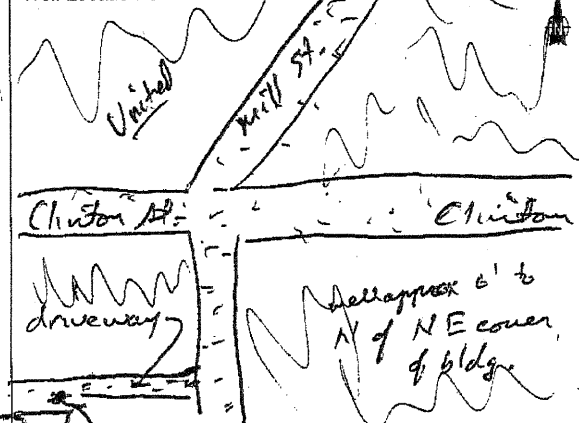 United
Mill St.
Clinton St.
Clinton
driveway
well approx 6' to
N of NE corner
of bldg.